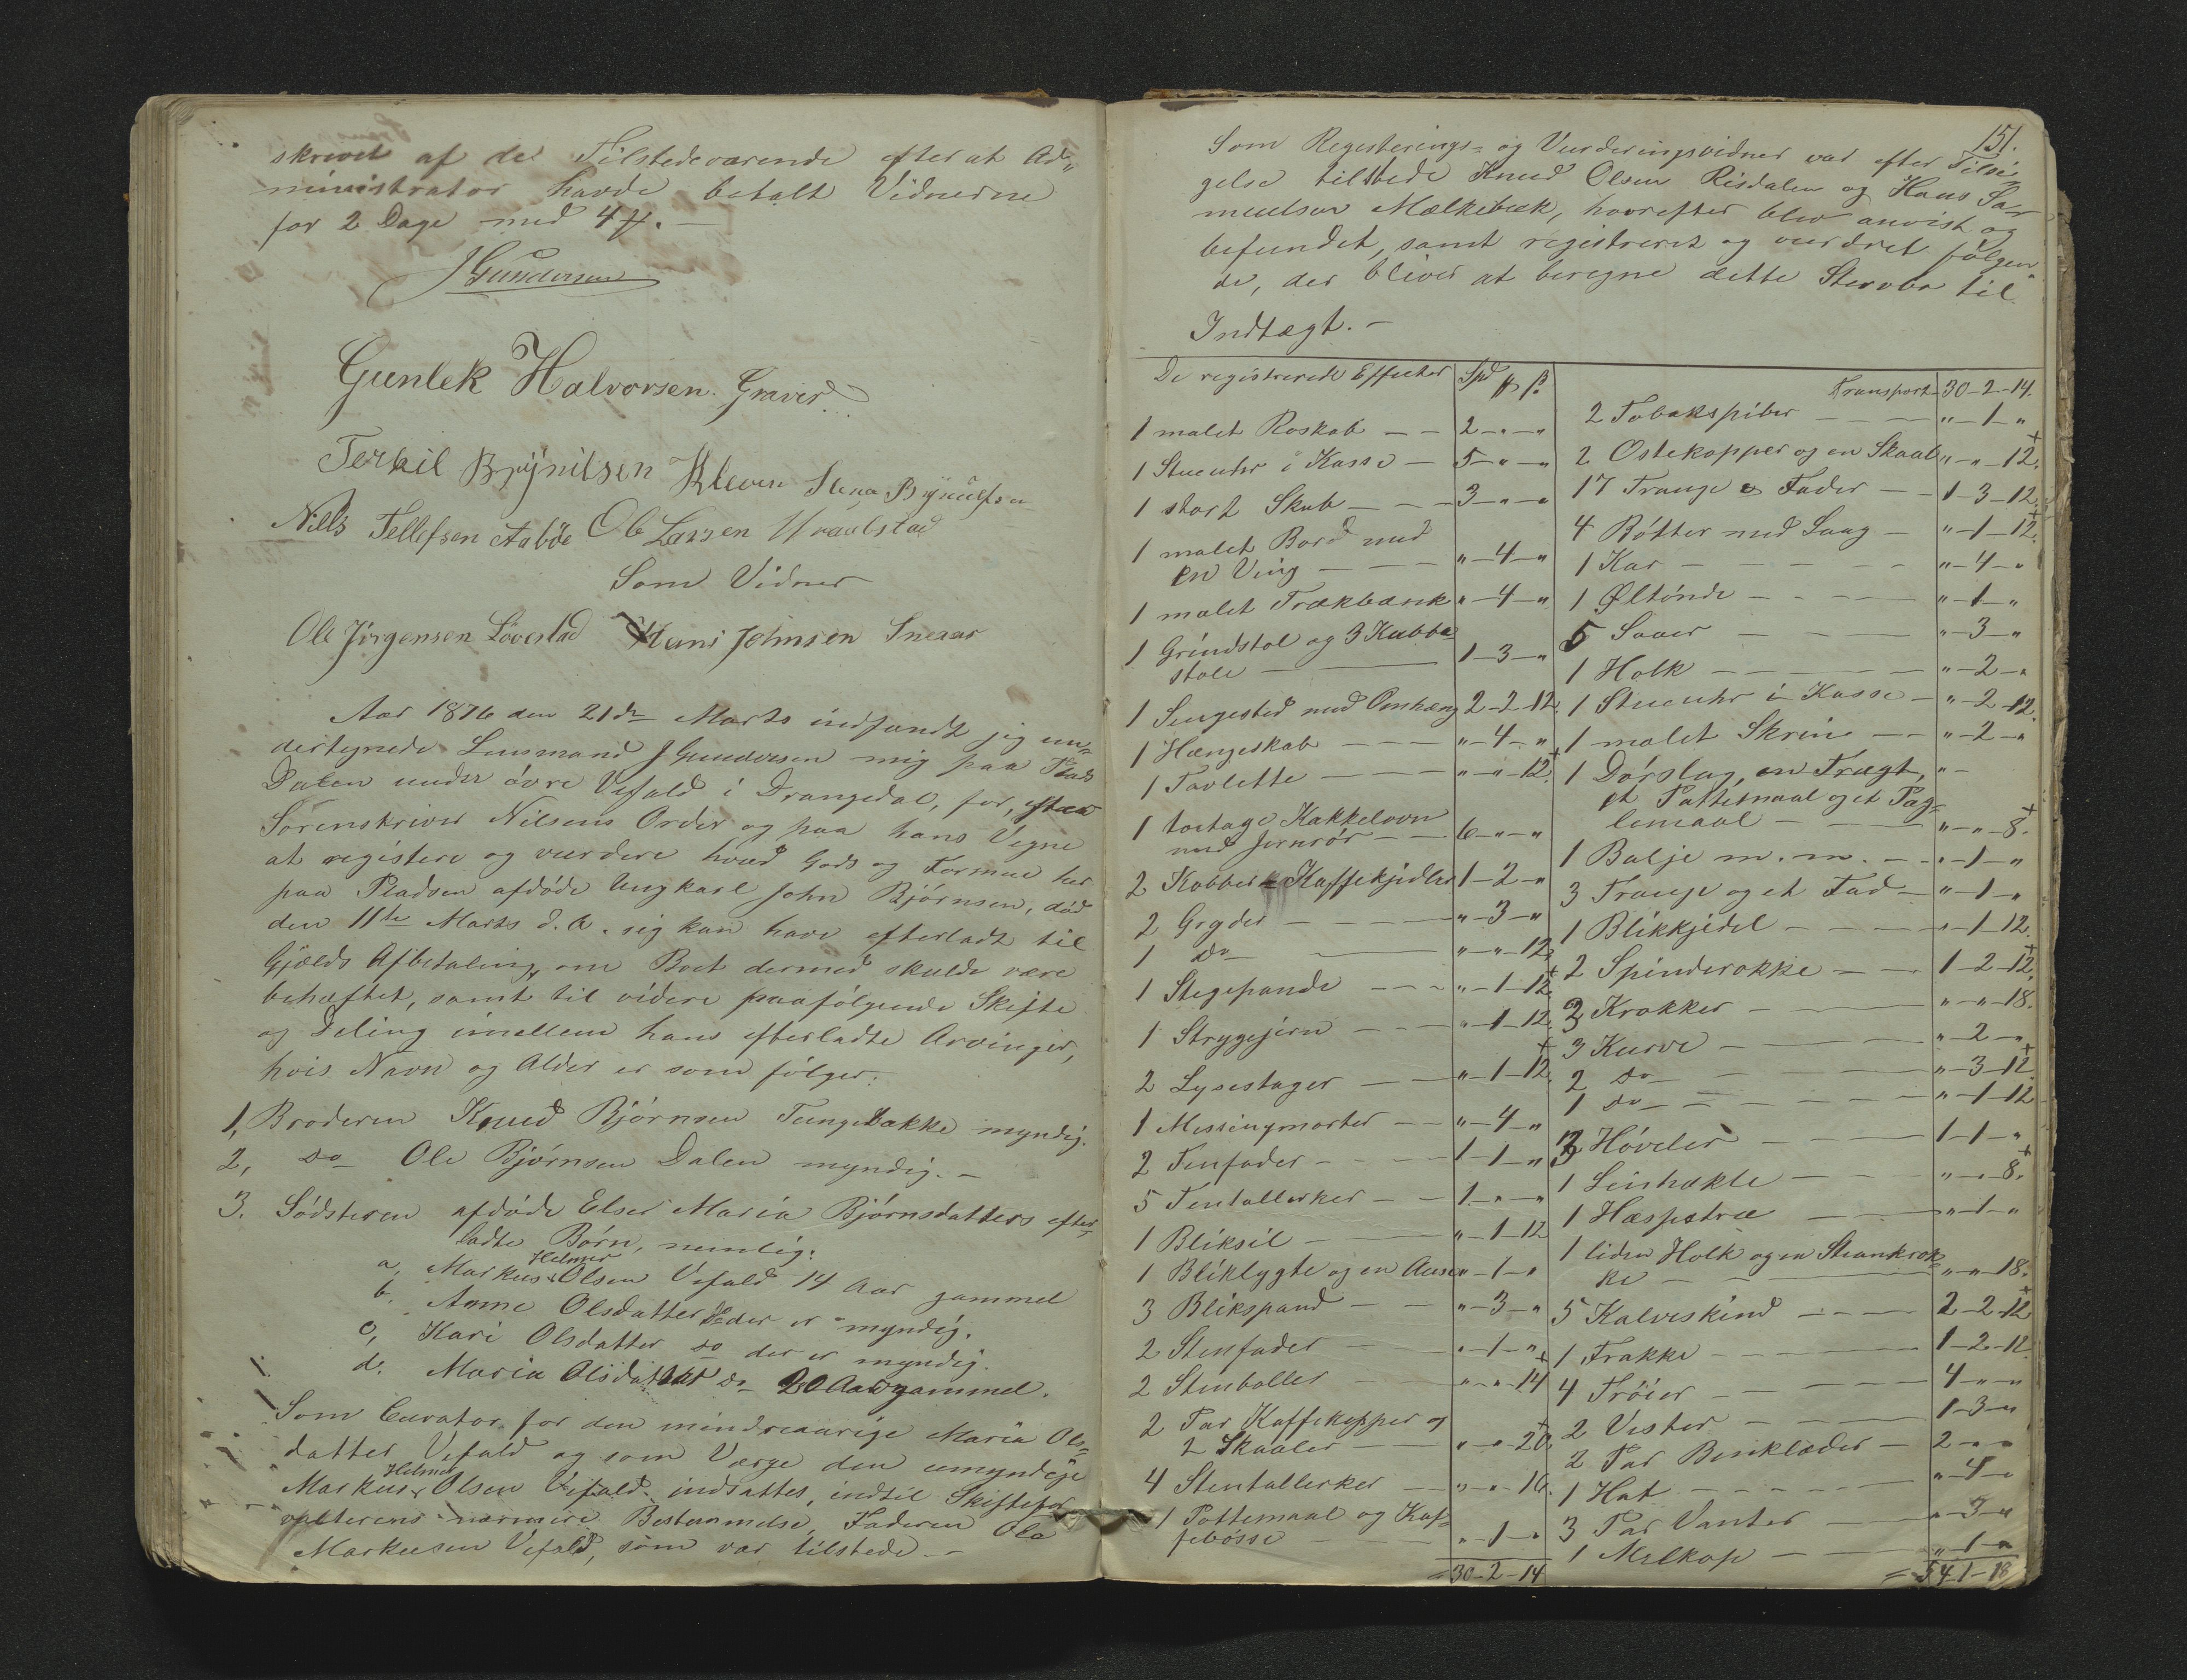 skrevet af de Tilstedeværende efter at Ad„
ministrator havde betalt Vidnerne
for 2 Dage med 4 #. —
J Gundersen
Gunlek Halvorsen Graver.
Terkil Brynilsen Kleven
Nills Tellefsen Aaböe Ole Larsen
Som Vidner
Ole Jörgensen Lövestad Hans Johnsen Sneaas
Aar 1876 den 21de Marts indfandt jeg un-
dertegnede Lensmand J Gundersen mig paa Plads
Dalen under övre Vefald i Drangedal, for, efter
Sorenskriver Nilsens Order og paa hans Vegne
at registere og vurdere hvad Gods og Formue her
paa Pladsen afdöde Ungkarl John Björnsen, död
den 11te Marts d. A. sig kan have efterladt til
Gjælds Afbetaling, om Boet dermed skulde være
behæftet, samt til videre paafölgende Skifte
og Deling imellem hans efterladte Arvinger,
hvis Navn og Alder er som fölger:
1, Broderen Knud Björnsen Tungebakke myndig.
2, do Ole Björnsen Dalen myndig. —
3. Södsteren afdöde Elser Maria Björnsdatters efter-
ladte Börn, nemlig:
a, Markus Helmer Olsen Vefald 14 Aar gammel
b. Anne Olsdatter do der er myndig.
c, Kari Olsdatter do der er myndig.
d. Maria Olsdatter do 20 Aar gammel.
Som Curator for den mindreaarige Maria Ols-
datter Vefald og som Værge den umyndige
Markus Helmer Olsen Vefald indsattes, indtil Skiftefor
valterens nærmere Bestemmelse, Faderen Ola
Markusen Vefald, som var tilstede. —
151.
Som Registerings- og Vurderingsvidner var efter Tilsi-
gelse tilstede Knud Olsen Risdalen og Hans Sa-
muelsen Mælkebæk, hvorefter blev anvist og
befundet, samt registreret og vurdret fölgen-
de, der bliver at beregne dette Stervbo til
Indtægt. —
De registrerede Effecter Spd # ß.
1 malet Roskab — — 2 - „ - „
1 Stueuhr i Kasse — 5 - „ - „
1 stort Skab — — — 3 - „ - „
1 malet Bord med
en Ving — — — „ - 4 - „
1 malet Trækbænk „ - 4 - „
1 Grindstol og 3 Kubbe
stole — 1 - 3 - „
1 Sengested med Omhæng 2 - 2 - 12.
1 Hængeskab — — — „ - 4 - „
1 Tavlette — — „ - „ - 12.
1 toetages Kakkelovn
med Jernrör — — 6 - „ - „
2 Kobber Kaffekjedler 1 - 2 - „
2 Gryder — „ - 3 - „
1 do — „ - „ - 12.
1 Stegepande — — — „ - 1 - 12.
1 Strygejern — — — „ - 1 - 12.
2 Lysestager — — „ - 1 - 12.
1 Messingmorter — — „ - 4 - „
2 Tinfader — — 1 - 1 - „
5 Tintallerker — — 1 - „ - „
1 Bliksil — „ - 1 - 12
1 Bliklygte og en Ause „ - 1 - „
3 Blikspand — — „ - 3 - „
2 Stenfader — „ - 1 - „
2 Stenboller — „ - „ - 14
2 Par Kaffekopper og
2 Skaaler — — „ - „ - 20.
4 Stentallerker — „ - „ - 16.
1 Pottemaal og Kaf-
febösse — „ - 1 - „
= 30 - 2 - 14
Transport 30 - 2 - 14.
2 Tobakspiber — — — „ - 1 - „
2 Ostekopper og en Skaal „ - „ - 12.
17 Trauge & Fader — — 1 - 3 - 12.
4 Bötter med Laag — „ - 1 - 12.
1 Kar — — — „ - 4 - „
1 Öltönde — — — „ - 1 - „
5 Saaer — — „ - 3 - „
1 Holk — — — „ - 2 - „
1 Stueuhr i Kasse — „ - 2 - 12.
1 malet Skrin — — „ - 2 - „
1 Dörslag, en Tragt, „ -
et Pottemaal og et Pæg-
lemaal — „ - „ - 8.
1 Balje m. m. — „ - 1 - „
3 Trauge og et Fad — „ - 1 - „
1 Blikkjedel — — — „ - 1 - 12.
2 Spinderokke — — 1 - 2 - 12.
3 Krakker — „ - „ - 18.
3 Kurve — „ - 2 - „
2 do — „ - 3 - 12.
1 do — „ - 1 - 12
3 Hövler — 1 - 1 - „
1 Linhekle — „ - „ - 8.
1 Hæspetræ — „ - 1 - „
1 liden Holk og en
ke — „ - „ - 18.
5 Kalveskind — — 2 - 2 - 12
1 Frakke — — 1 - 2 - 12
4 Tröier — — 4 - „ - „
2 Vester — 1 - 3 - „
2 Par Benklæder — 2 - „ - „
1 Hat — — „ - 4 - „
3 Par Vanter — „ - 3 - „
1 Melkop — „ - 1 - „
= 54 - 1 - 18